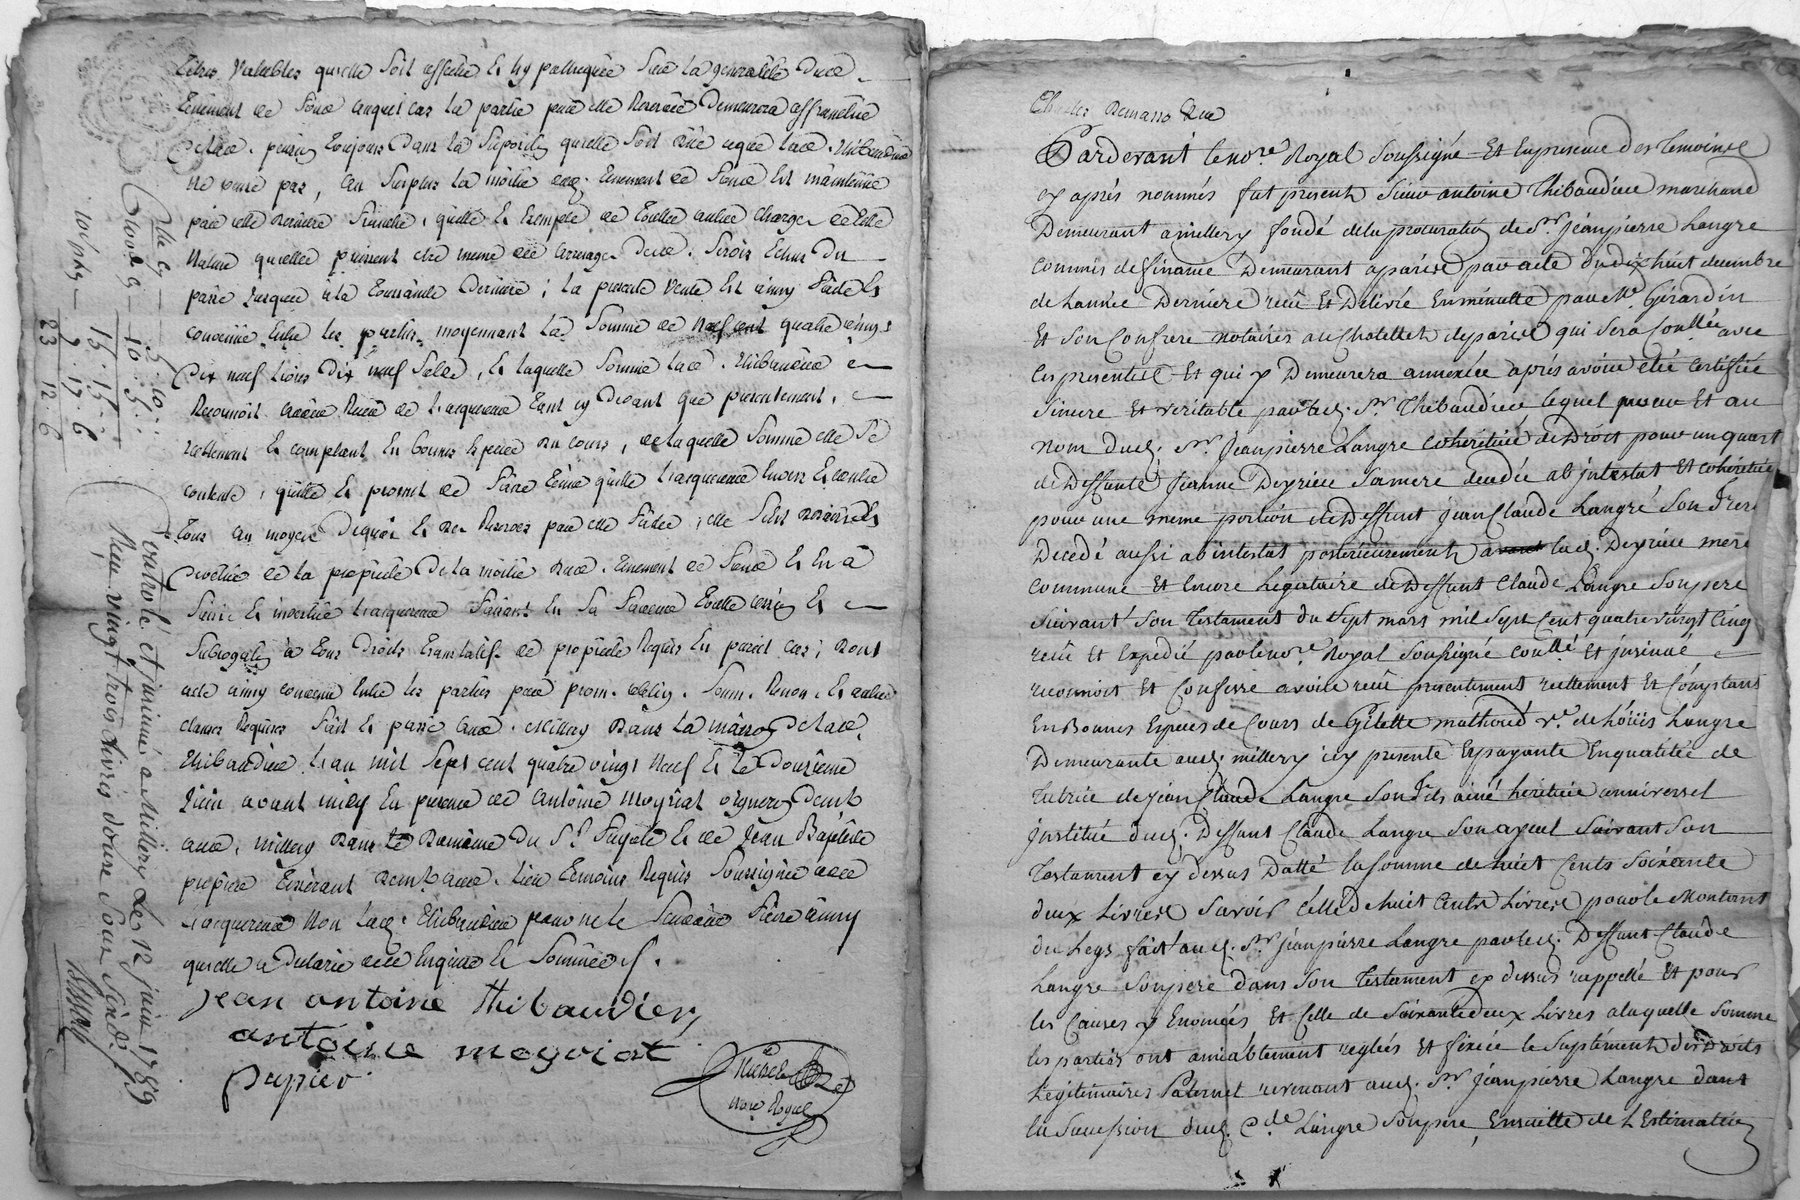 titres valables qu'elle soit affectée et hypothequée sur la generalité dud.
tenement de fond auquel cas la partie par elle reservée demeurera affranchie
pension toujours dans la supposition qu'elle soit düe et que lad. Thibaudier
ne paye pas, au surplus la moitié dud. tenement de fond est maintenüe
par cette derniere franche, quitte et exempte de toutes autres charges de telle
nature qu'elles puissent etre meme des arrerages de servis echus du
passé jusques à la toussaints derniere ; la presente vente est ainsy faite et
convenüe entre les parties moyennant la somme de quatre vingt
dix neuf livres dix neuf sols, et laquelle somme lad. Thibaudier
reconnoit avoir reçu de l'acquereur tant cy devant que presentement,
réellement et comptant en bonnes especes du cours, de laquelle somme elle se
contente, quitte et promet de faire tenir quitte l'acquereur envers et contre
tous au moyen de quoi et des reserves par elle faites, elle s'est
devetüe de la propriété de la moitié dud. tenement de fond et en a
saisi et investi l'acquereur
subrogation à tous droits translatifs de propriété requis en pareil cas ; dont
acte ainsy convenu entre les parties par prom. oblig. soum. renon. et autres
clauses requises fait et passé aud. Millery dans la maison de lad.
Thibaudier l'an mil sept cent quatre vingt neuf et le douzieme
juin avant midy en presence de Antoine Moyriat vigneron demt
aud. Millery dans le domaine du Sr. et de Jean Baptiste
demt. aud. lieu temoins requis soussignés avec
l'acquereur non lad. Thibaudier pour ne le sçavoir faire ainsy
qu'elle a declaré de ce enquise et sommée.
jean antoine thibaudier
antoine moyriat
papier
Notre Royal
Controlé et insinué a Millery le 12 juin 1789
Reçu vingt trois livres douze sous six d.
5. 10.
10. 5.
15. 15.
7. 17. 6
23 12. 6
Pardevant le nore. Royal soussigné et en presence des temoins
cy après nommés fut present sieur antoine Thibaudier marchand
demeurant a millery fondé de la procuration de Sr. jeanpierre Langre
commis de finance demeurant a paris par acte du dix huit decembre
de l'année derniere reçu et delivré en minutte par Me. Girardin
et son confrere notaires au chatellet de paris qui sera conllée avec
ces presentes et qui y demeurera annexée après avoir eté certifiée
sincere et veritable par led. Sr. Thibaudier lequel pour et au
nom dud. Sr. jeanpierre Langre coheritier de droit pour un quart
de deffunte jeanne Deyrieu sa mere decedée ab intestat et coheritier
pour une meme portion de deffunt jean Claude Langré son frere
decedé aussi ab intestat posterieurement a lad. Deyrieu mere
commune et encore legataire de deffunt Claude Langre son pere
suivant son testament du sept mars mil sept cent quatre vingt cinq
reçu et expedié par le nore. Royal soussigné conllé et insinué
reconnoit et confesse avoir reçu presentement réellement et comptant
en bonnes especes de cours de Gilette mathoud ve. de Loüis Langre
demeurante aud. millery icy presente et payante en qualité de
tutrice de jean Claude Langre son fils ainé héritier universel
institué dud. deffunt Claude Langre son ayeul suivant son
testament cy dessus datté la somme de huit cents soixante
deux livres savoir celle de huit cents livres pour le montant
du legs fait aud. Sr. jeanpierre Langre par led. deffunt Claude
Langre son pere dans son testament cy dessus rappellé et pour
les causes y enoncées et celle de soixante deux livres a laquelle somme
les parties ont amiablement reglés et fixée le suplément des droits
legitimaires paternel revenant aud. Sr. jeanpierre Langre dans
la succession dud. Cde. Langre son pere, ensuitte de l'estimation